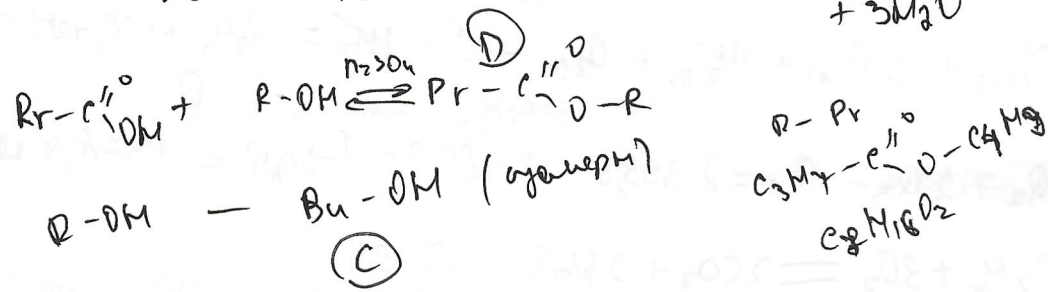 + 3H₂O
Pr-C(=O)OH + R-OH ⇌ (H₂SO₄) Pr-C(=O)O-R
D
R-OH — Bu-OH
C
R- Pr
C₃H₇-C(=O)O-C₄H₉
C₈H₁₆O₂